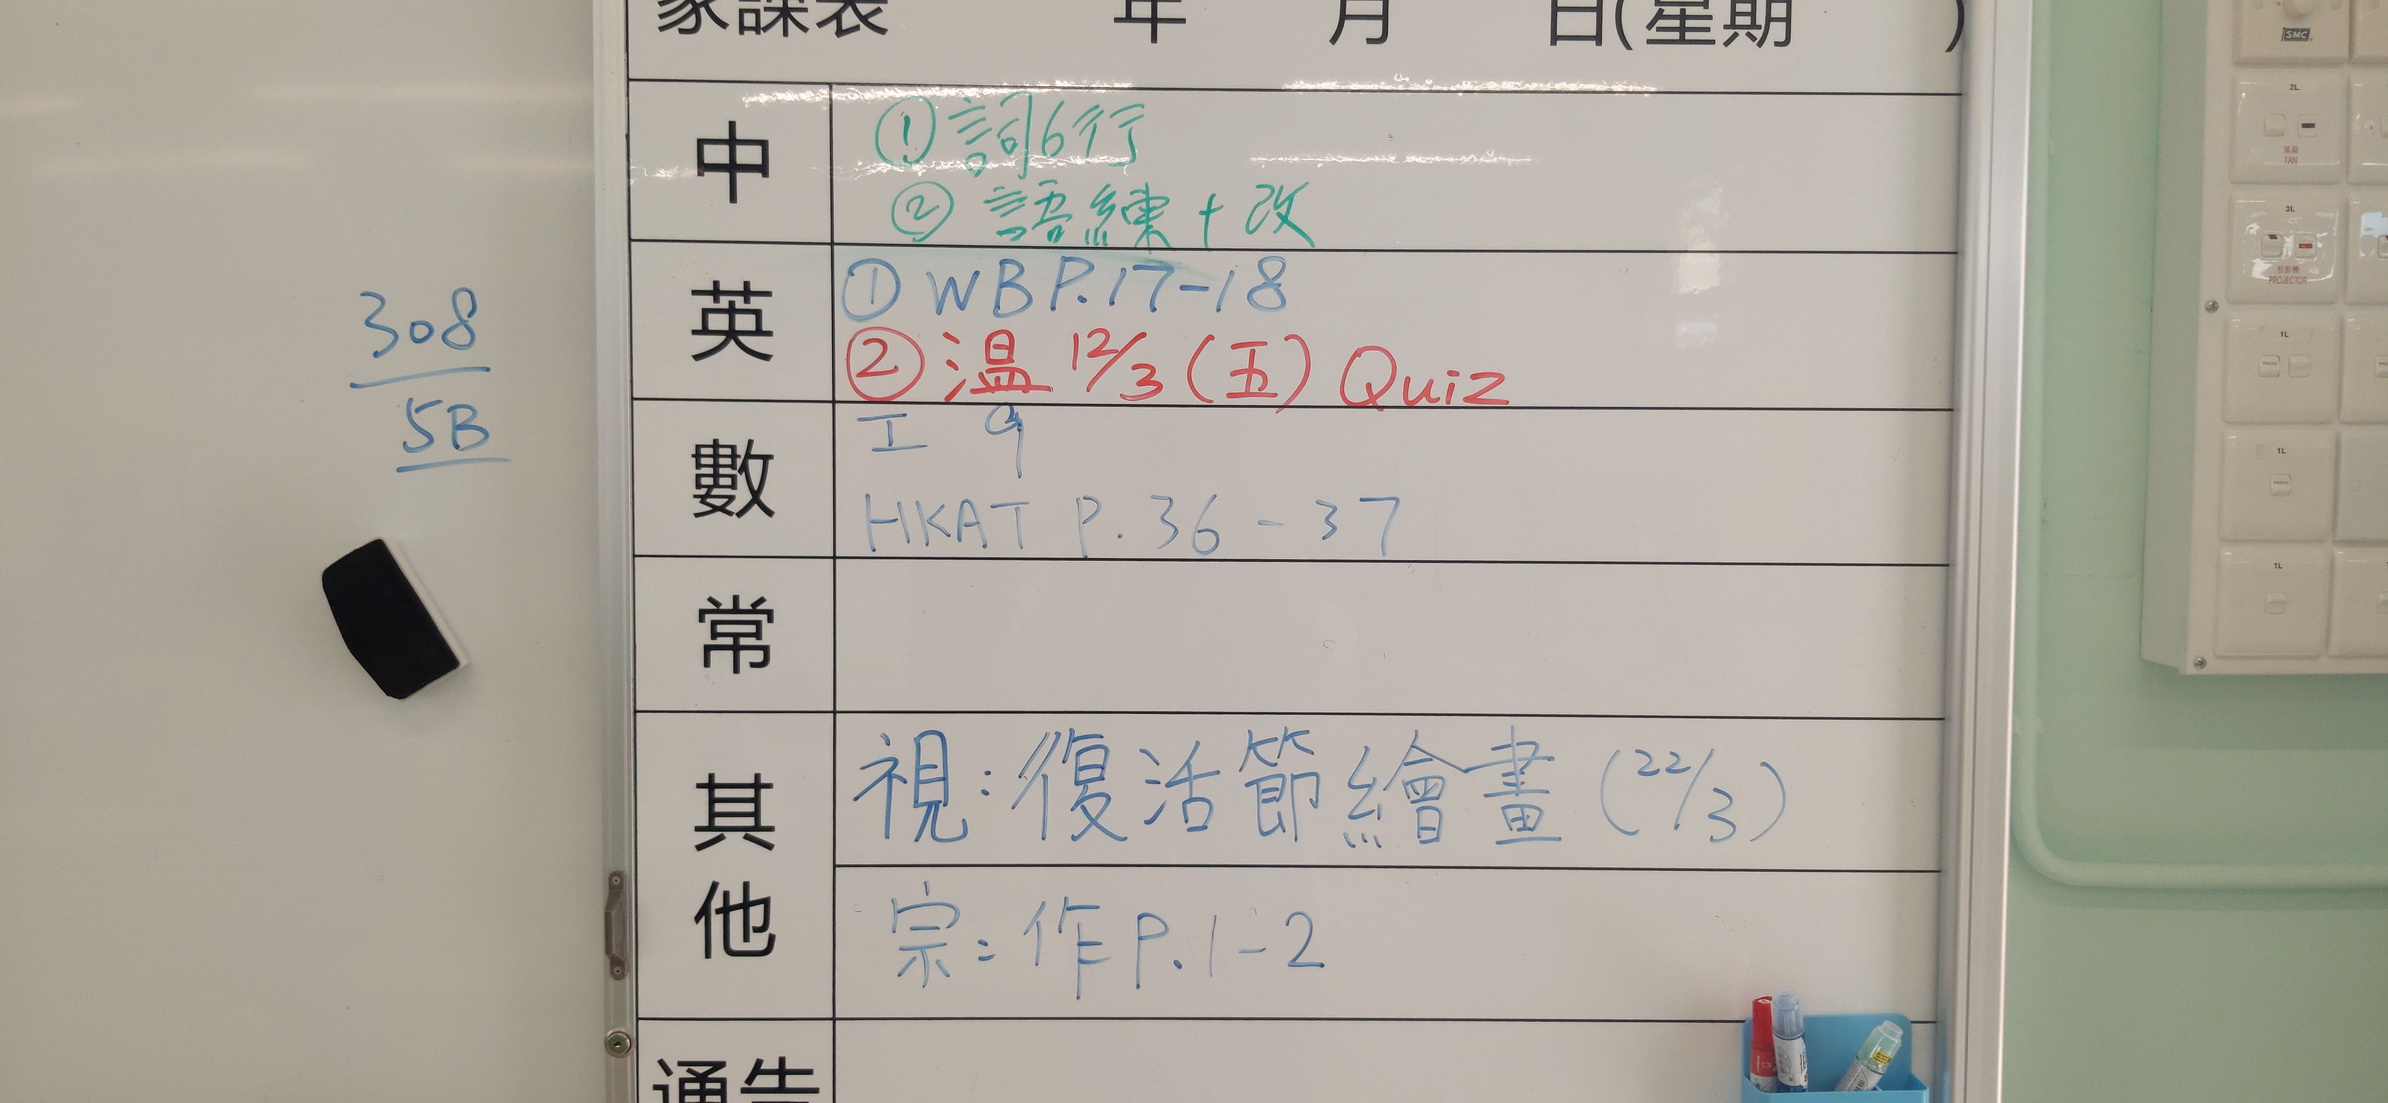 家課表 年 月 日(星期 )
中
①詞6行
②語練+改
英
①WB P.17-18
②温 12/3 (五) Quiz
數
工 9
HKAT P.36-37
常
其他
視:復活節繪畫 (22/3)
宗:作P.1-2
通告
308
5B
SMC
2L
風扇
FAN
3L
投影機
PROJECTOR
1L
1L
1L